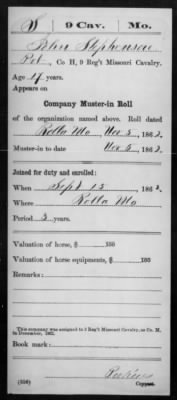 S | 9 Cav. | Mo.
John Stephenson
Pvt., Co H, 9 Reg't Missouri Cavalry.
Age 17 years.
Appears on
Company Muster-in Roll
of the organization named above. Roll dated
Rolla Mo, Nov 5, 1862.
Muster-in to date Nov 5, 1862.
Joined for duty and enrolled:
When Sept 15, 1862.
Where Rolla Mo
Period 3 years.
Valuation of horse, $ 100
Valuation of horse equipments, $ 100
Remarks:
This company was assigned to 3 Reg't Missouri Cavalry, as Co. M,
in December, 1862.
Book mark:
(356)
Copyist.